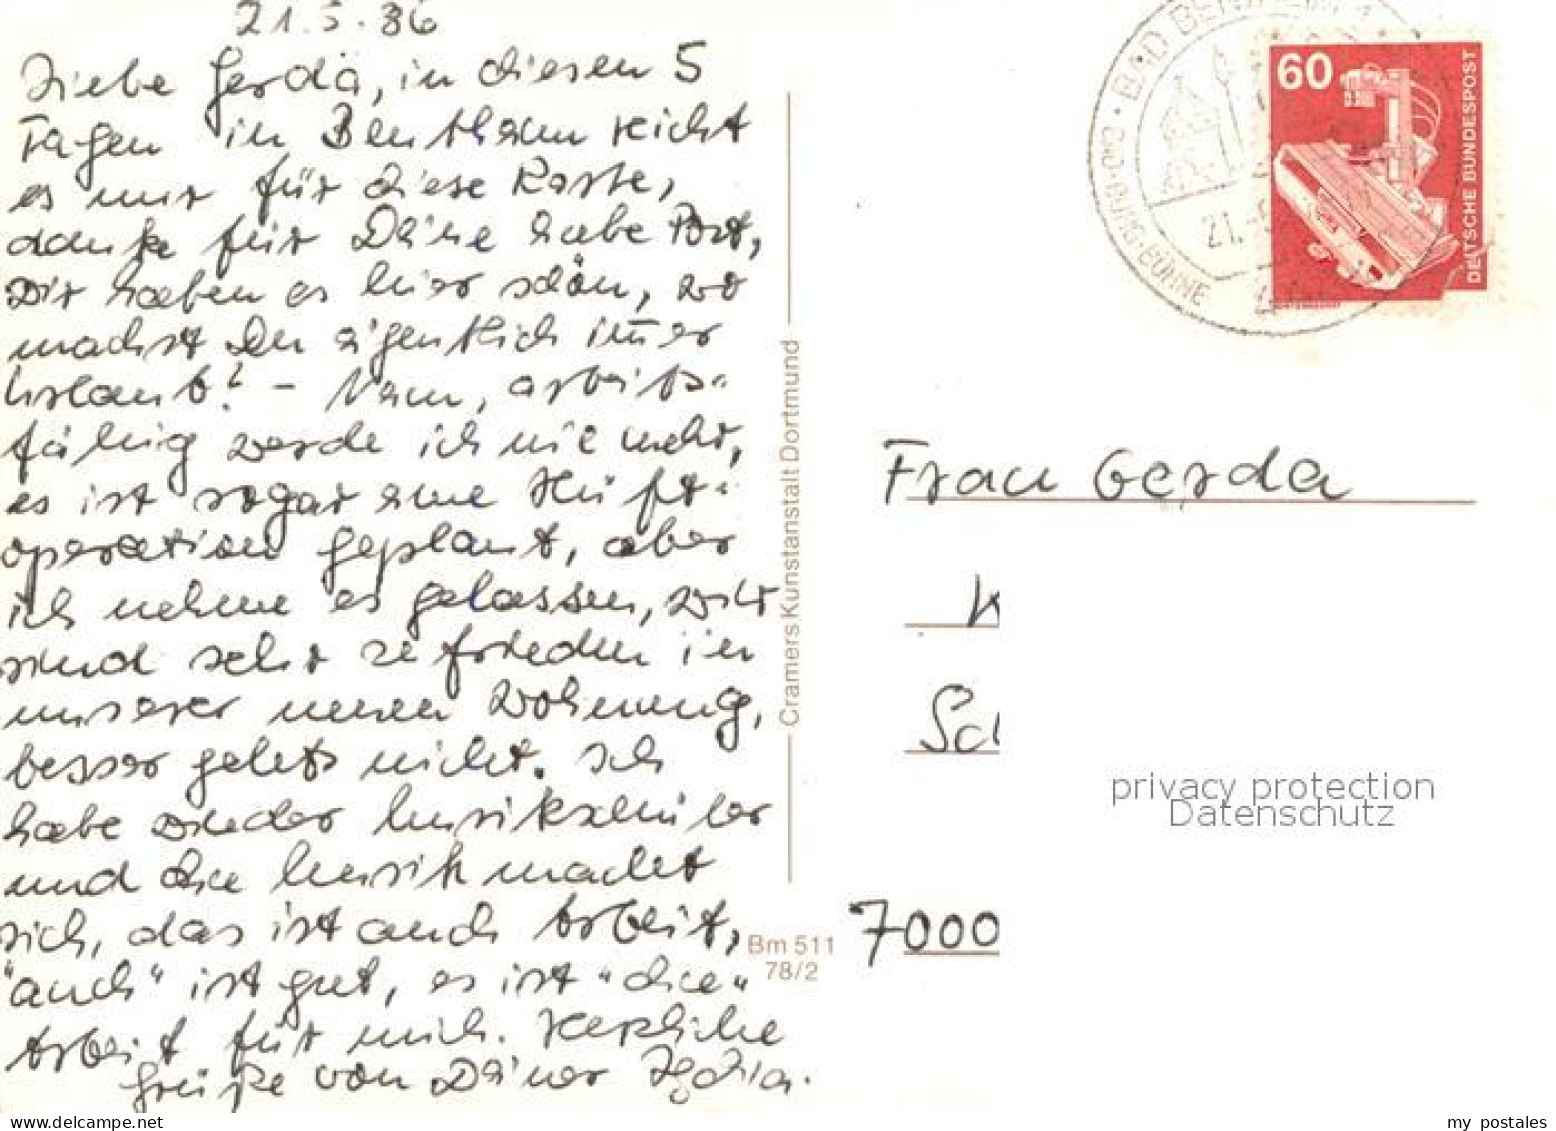 21.5.86
Liebe Gerda, in diesen 5
Tagen in Bentheim reicht
es nur für diese Karte,
danke für Deine liebe Post,
wir haben es hier schön, wo
machst Du eigentlich im̄er
Urlaub? – Nein, arbeits-
fähig werde ich nie mehr,
es ist sogar eine Hüft-
operation geplant, aber
ich nehme es gelassen, wir
sind sehr zufrieden in
unserer neuen Wohnung,
besser geht's nicht. Ich
habe wieder Musikschüler
und die Musik macht
sich, das ist auch Arbeit,
"auch" ist gut, es ist "die"
Arbeit für mich. Herzliche
Grüße von Deiner
Cramers Kunstanstalt Dortmund
Bm 511
78/2
BAD BENTHEIM 1
BURG-BÜHNE
21.-5
60
DEUTSCHE BUNDESPOST
Frau Gerda
K
Sch
privacy protection
Datenschutz
7000
my postales